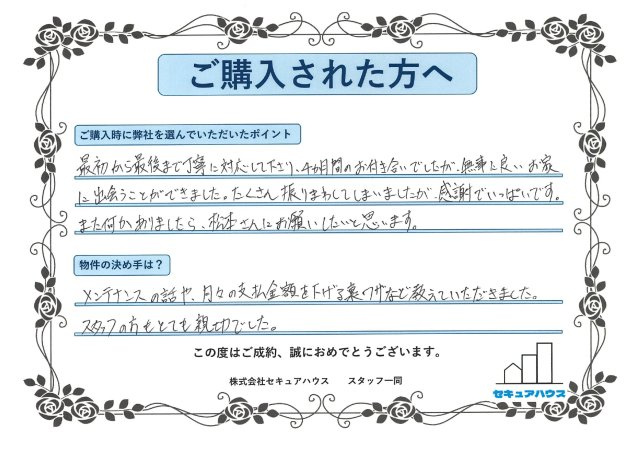 ご購入された方へ
ご購入時に弊社を選んでいただいたポイント
最初から最後まで丁寧に対応して下さり、4ヵ月間のお付き合いでしたが、無事に良いお家
に出会うことができました。たくさん振りまわしてしまいましたが、感謝でいっぱいです。
また何かありましたら、松本さんにお願いしたいと思います。
物件の決め手は？
メンテナンスの話や、月々の支払金額を下げる裏ワザなど教えていただきました。
スタッフの方もとても親切でした。
この度はご成約、誠におめでとうございます。
株式会社セキュアハウス　スタッフ一同
セキュアハウス